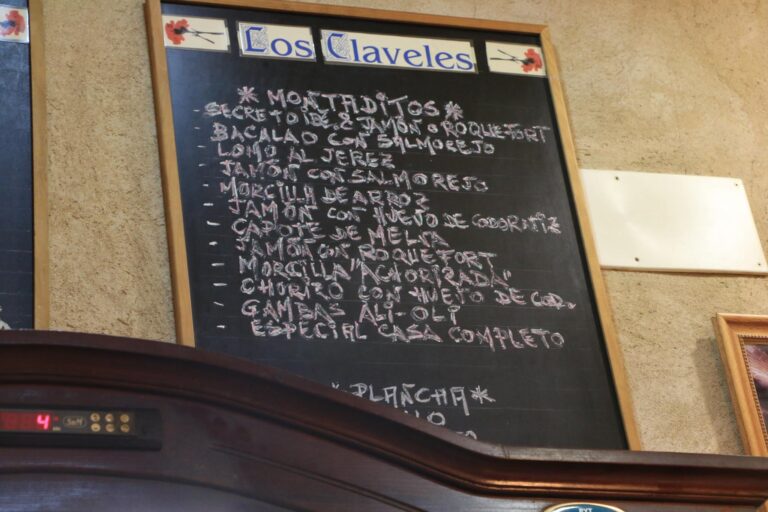 Los Claveles
* MONTADITOS *
- SECRETO IBE. JAMÓN O ROQUEFORT
- BACALAO CON SALMOREJO
- LOMO AL JEREZ
- JAMÓN CON SALMOREJO
- MORCILLA DE ARROZ
- JAMÓN CON HUEJO DE CODORNIZ
- CAPOTE DE MELVA
- JAMÓN CON ROQUEFORT
- MORCILLA "ACHORIZADA"
- CHORIZO CON HUEJO DE COD.
- GAMBAS ALI-OLI
- ESPECIAL CASA COMPLETO
* PLANCHA *
4